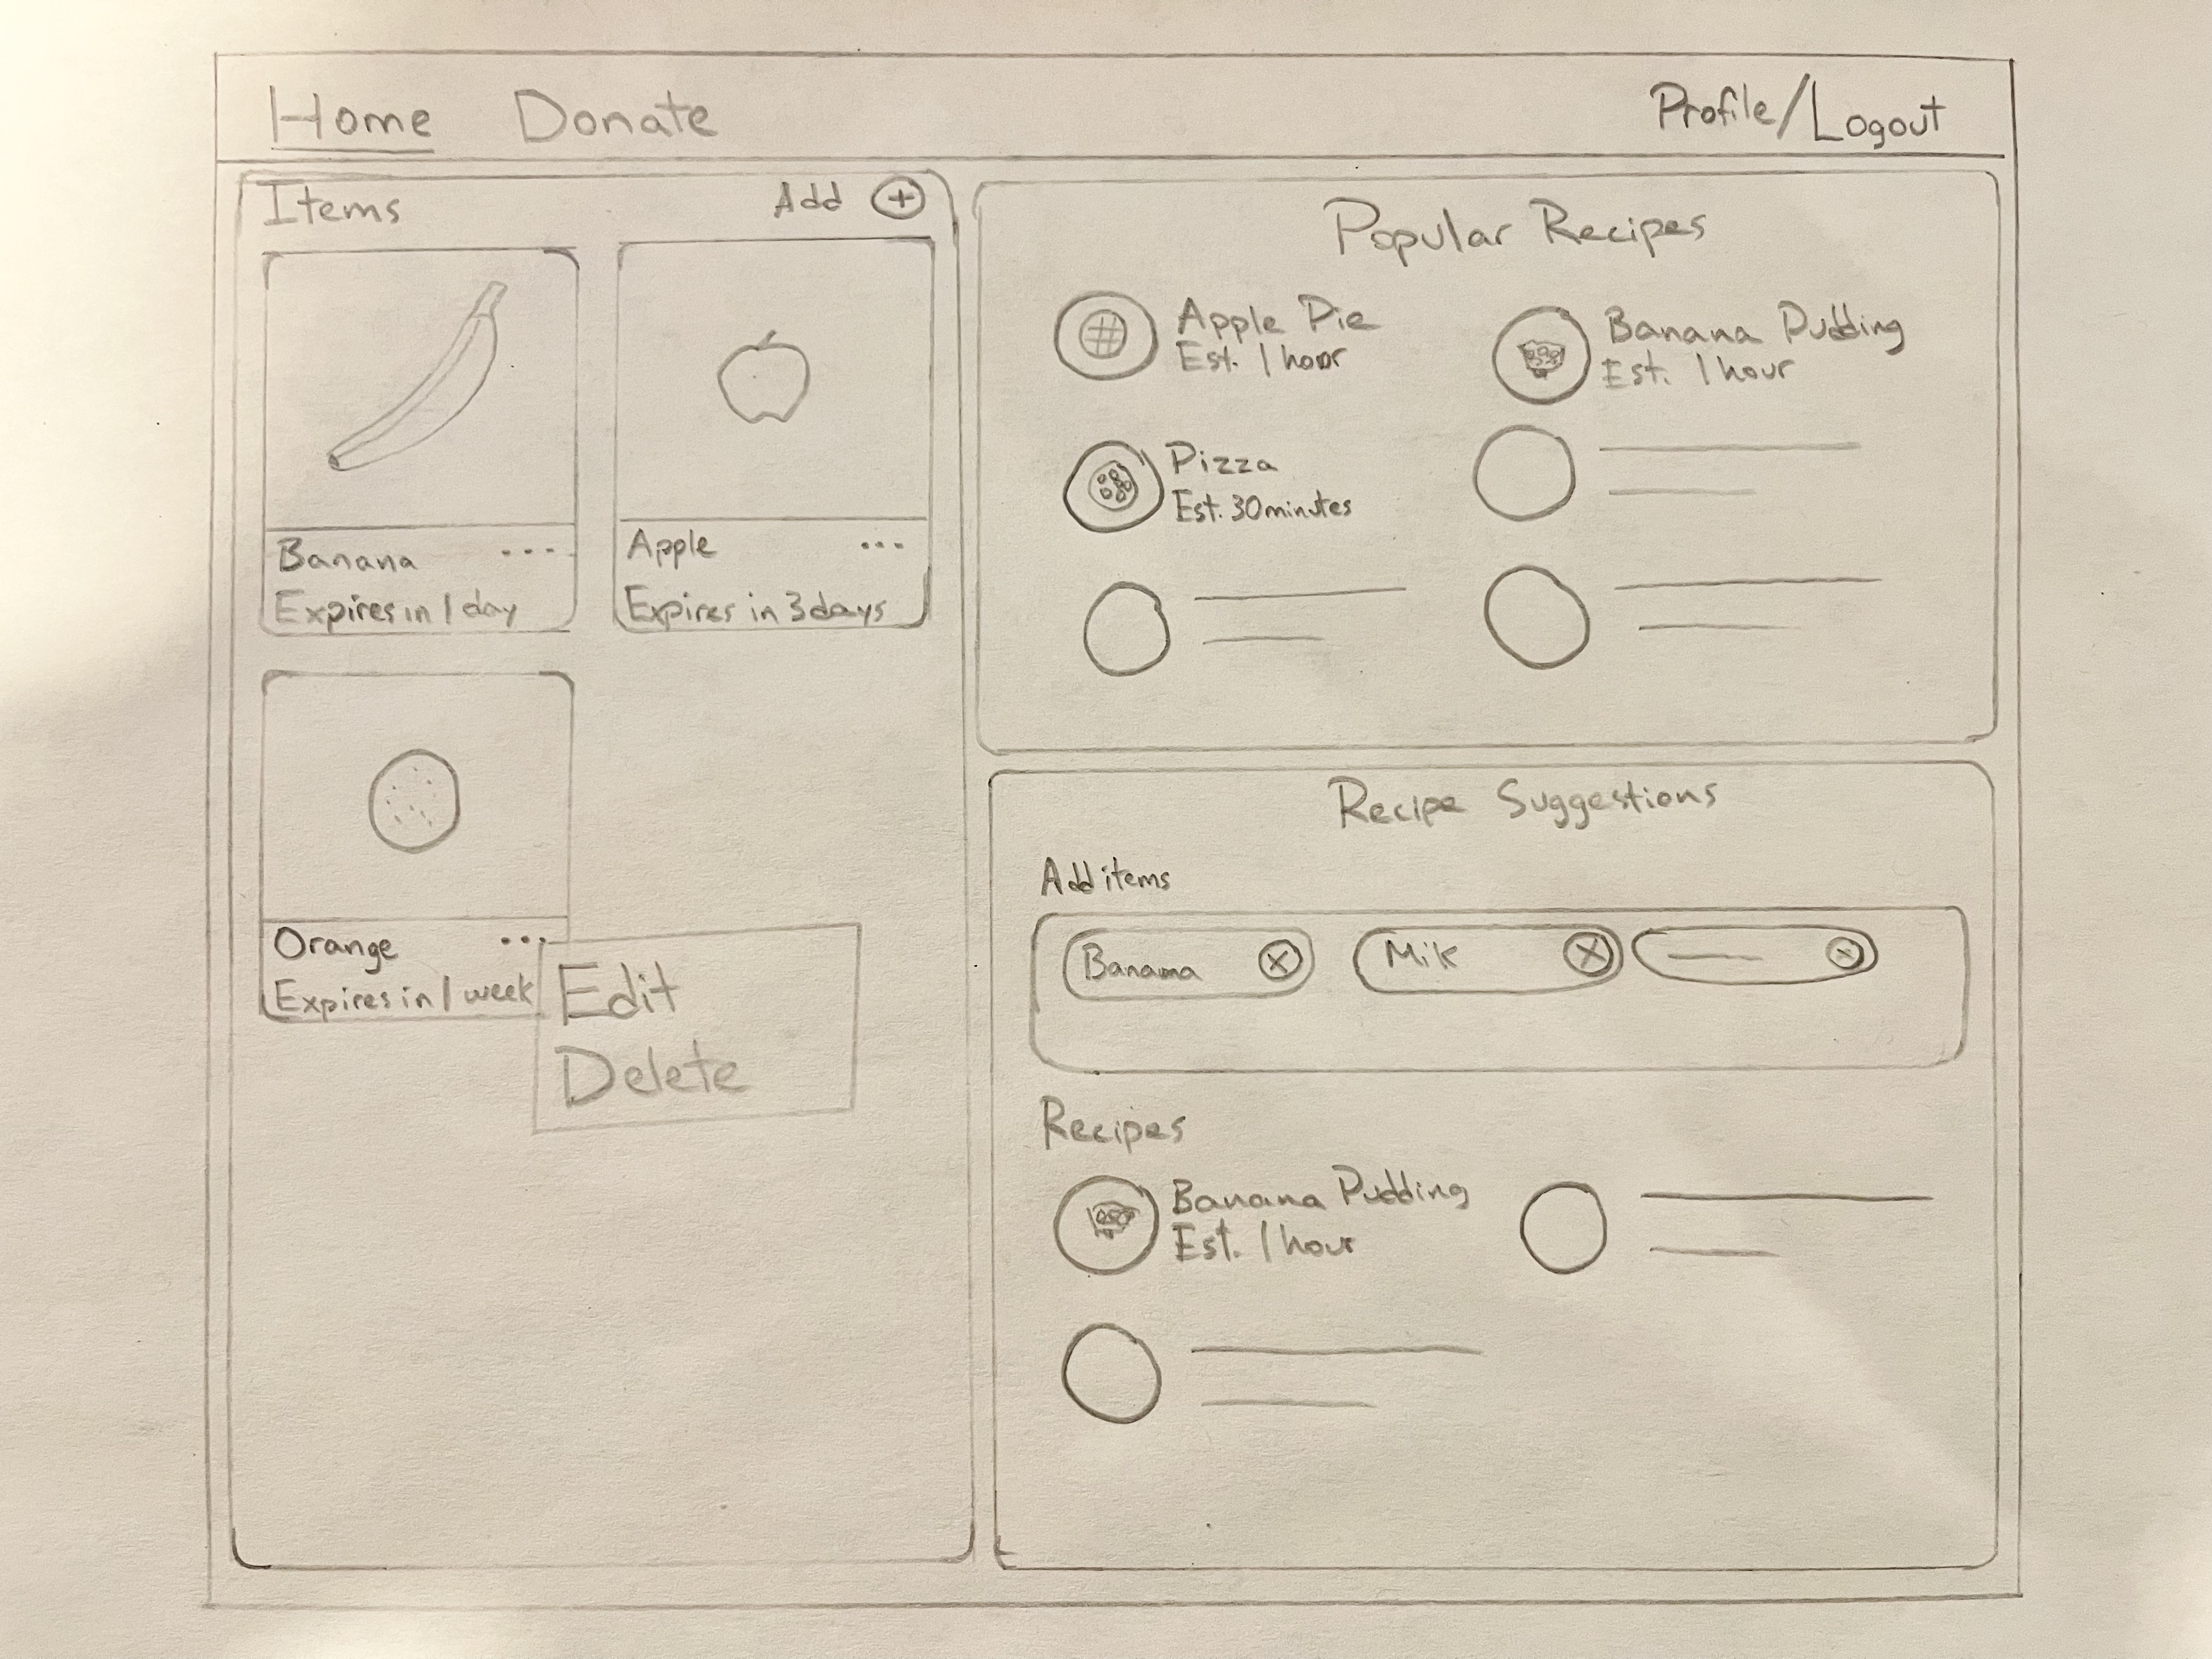 Home Donate Profile/Logout
Items Add +
Banana ...
Expires in 1 day
Apple ...
Expires in 3 days
Orange ...
Expires in 1 week
Edit
Delete
Popular Recipes
Apple Pie
Est. 1 hour
Banana Pudding
Est. 1 hour
Pizza
Est. 30 minutes
Recipe Suggestions
Add items
Banana X Milk X X
Recipes
Banana Pudding
Est. 1 hour